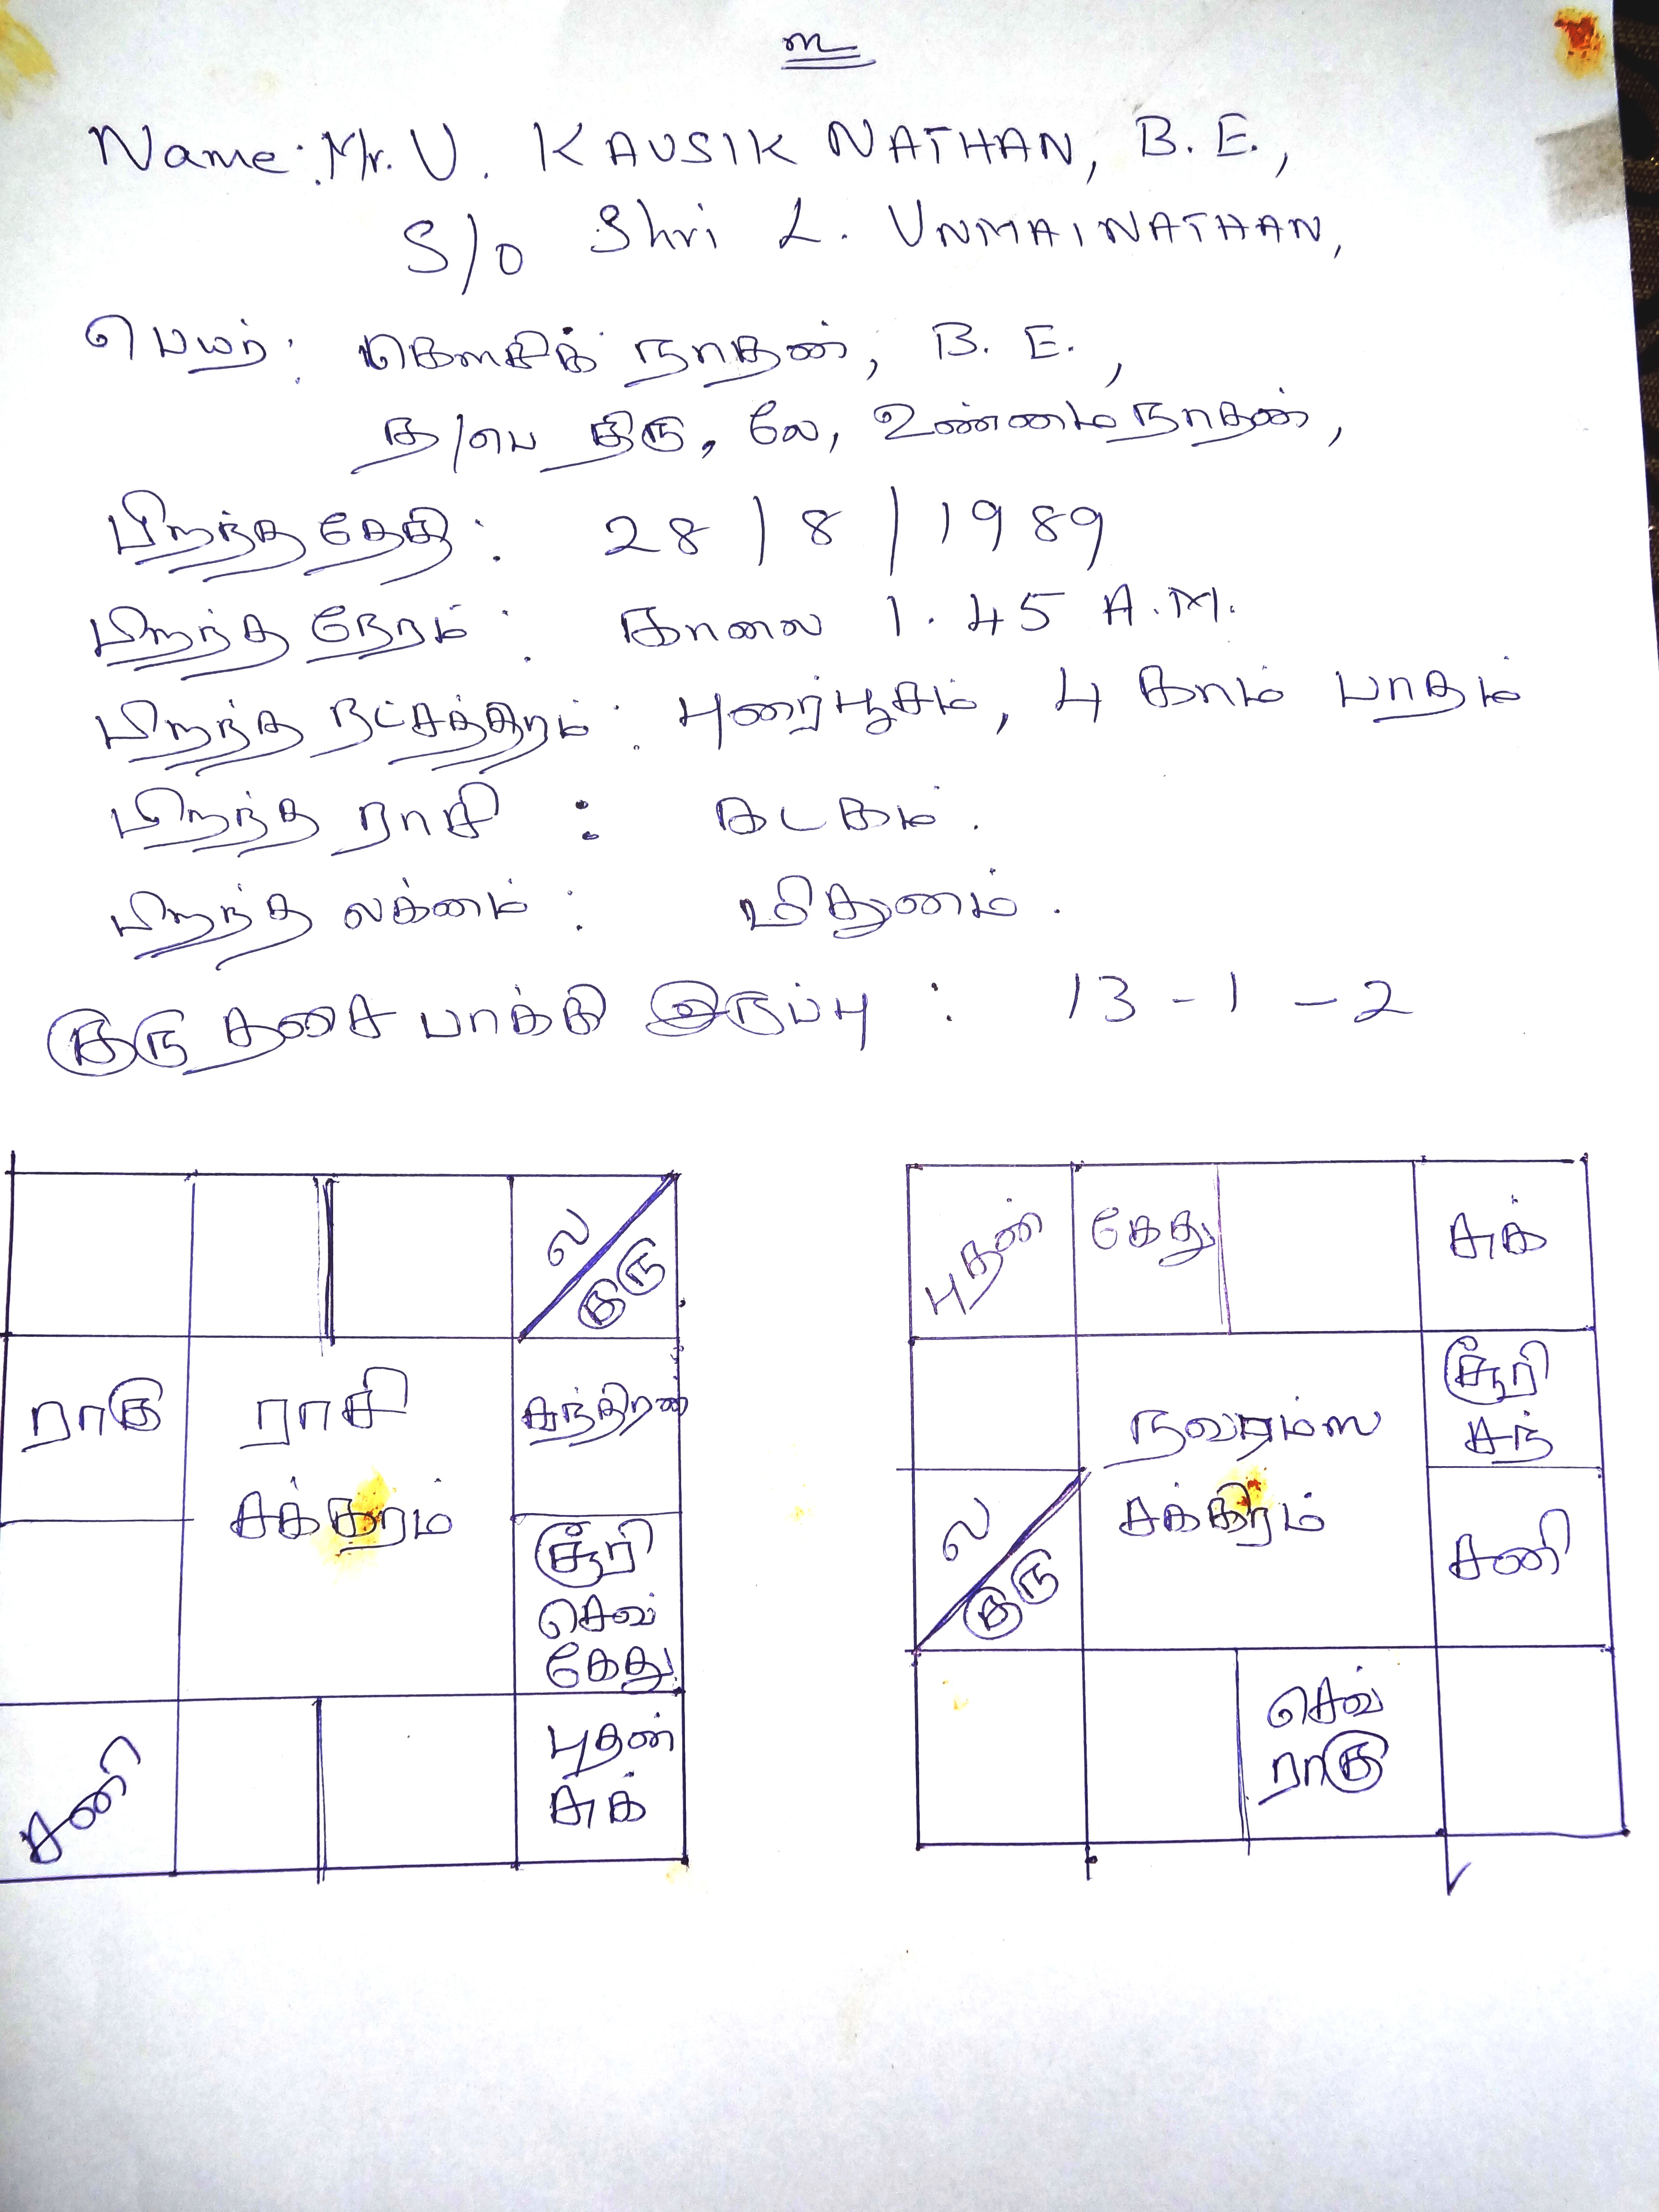 உ
Name: Mr. U. KAUSIK NATHAN, B.E.,
S/o Shri L. UNMAINATHAN,
பெயர்: கௌசிக் நாதன், B. E.,
த/பெ திரு, லே, உண்மைநாதன்,
பிறந்த தேதி: 28/8/1989
பிறந்த நேரம்: காலை 1.45 A.M.
பிறந்த நட்சத்திரம்: புனர்பூசம், 4 காம் பாதம்
பிறந்த ராசி : கடகம்.
பிறந்த லக்னம் : மிதுனம்.
குரு தசை பாக்கி இருப்பு : 13-1-2
ல
குரு
ராகு
ராசி
சக்கரம்
சந்திரன்
சூரி
செவ்
கேது
சனி
புதன்
சுக்
புதன்
கேது
சுக்
நவாம்ஸ
சக்கிரம்
சூரி
சந்
ல
குரு
சனி
செவ்
ராகு